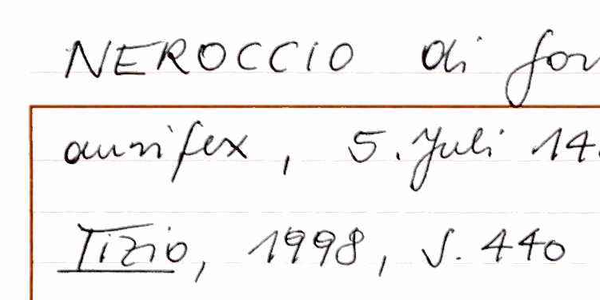 NEROCCIO di
aurifex, 5. Juli
Tizio, 1998, S. 440